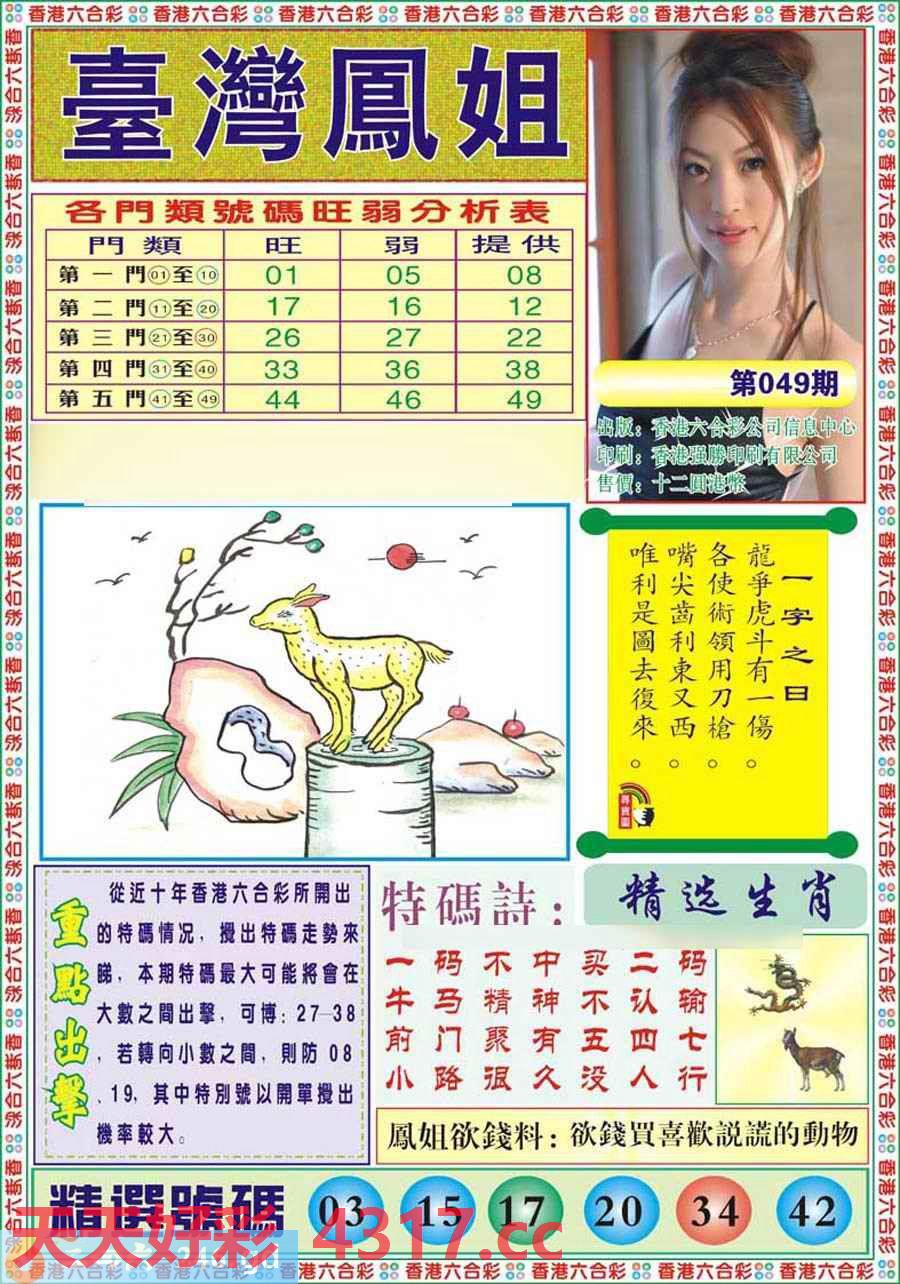 香港六合彩
臺灣鳳姐
各門類號碼旺弱分析表
門類 旺 弱 提供
第一門01至10 01 05 08
第二門11至20 17 16 12
第三門21至30 26 27 22
第四門31至40 33 36 38
第五門41至49 44 46 49
第049期
出版：香港六合彩公司信息中心
印刷：香港强勝印刷有限公司
售價：十二圓港幣
一字之曰
龍爭虎斗有一傷。
各使術領用刀槍。
嘴尖齒利東又西。
唯利是圖去復來。
尋寶圖
重點出擊
從近十年香港六合彩所開出
的特碼情况，攪出特碼走勢來
睇，本期特碼最大可能將會在
大數之間出擊，可博：27—38
，若轉向小數之間，則防 08
、19，其中特別號以開單攪出
機率較大。
特碼詩：
一码不中买二码
牛马精神不认输
前门聚有五四七
小路很久没人行
精选生肖
鳳姐欲錢料：欲錢買喜歡説謊的動物
精選號碼 03 15 17 20 34 42
天天好彩 4317.cc